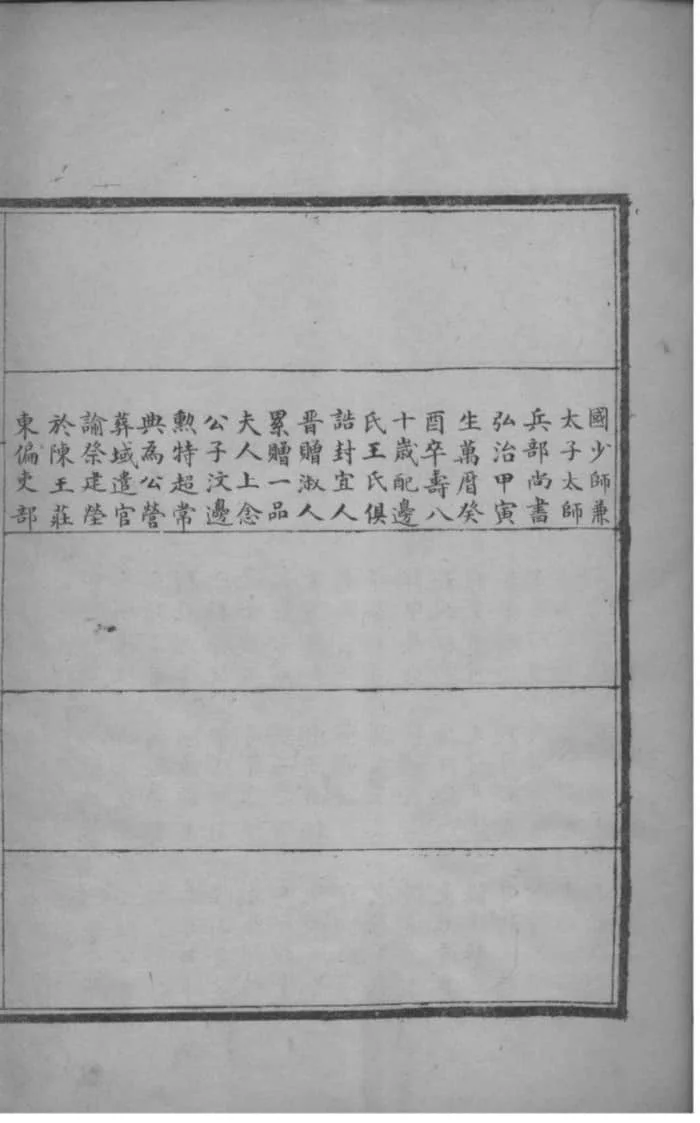 國少師兼
太子太師
兵部尚書
弘治甲寅
生萬曆癸
酉卒壽八
十歲配邊
氏王氏俱
誥封宜人
晋贈淑人
累贈一品
夫人上念
公子汶邊
勲特超常
典為公營
葬域遣官
諭祭建塋
於陳王莊
東偏吏部